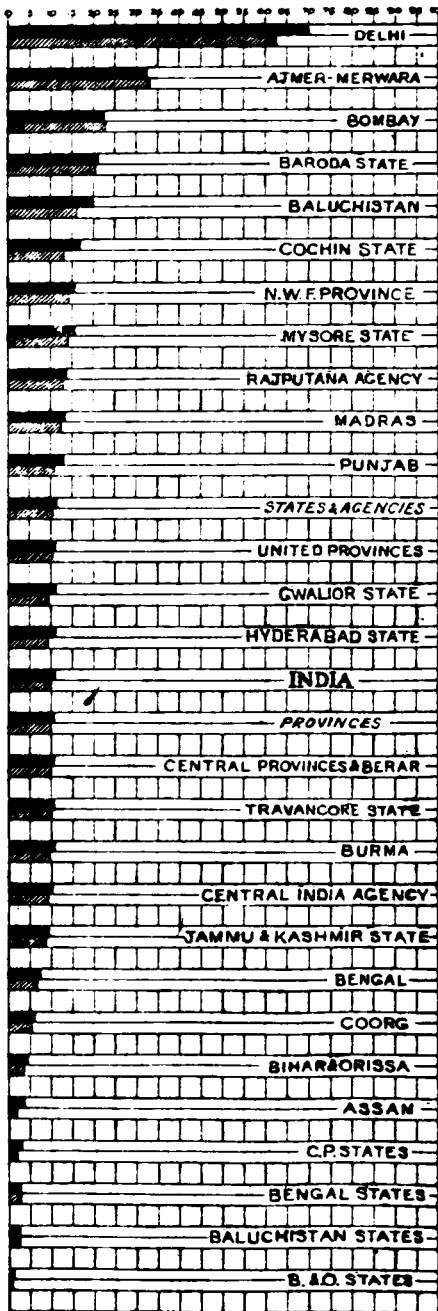 0 5 10 15 20 25 30 35 40 45 50 55 60 65 70 75 80 85 90 95 100
DELHI
AJMER-MERWARA
BOMBAY
BARODA STATE
BALUCHISTAN
COCHIN STATE
N.W.F. PROVINCE
MYSORE STATE
RAJPUTANA AGENCY
MADRAS
PUNJAB
STATES & AGENCIES
UNITED PROVINCES
GWALIOR STATE
HYDERABAD STATE
INDIA
PROVINCES
CENTRAL PROVINCES & BERAR
TRAVANCORE STATE
BURMA
CENTRAL INDIA AGENCY
JAMMU & KASHMIR STATE
BENGAL
COORG
BIHAR & ORISSA
ASSAM
C.P. STATES
BENGAL STATES
BALUCHISTAN STATES
B. & O. STATES